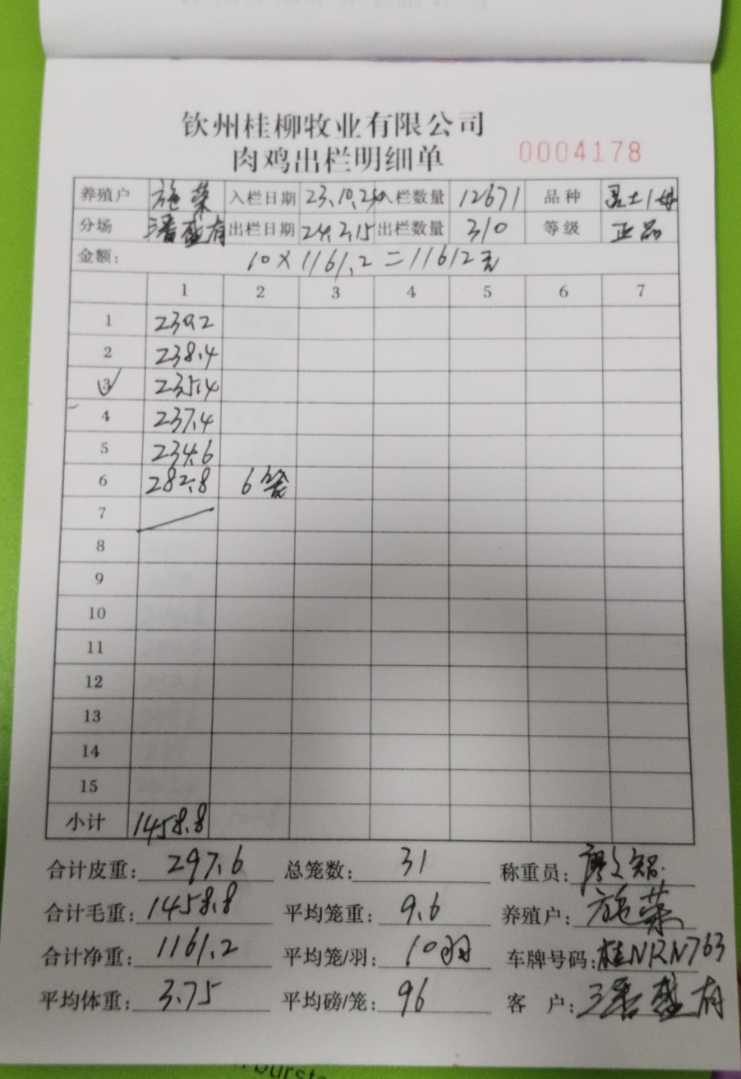 钦州桂柳牧业有限公司
肉鸡出栏明细单 0004178
养殖户 施荣 入栏日期 23.10. 入栏数量 12671 品种
分场 潘盛有 出栏日期 24.2.15 出栏数量 310 等级 正品
金额: 10×1161.2=11612元
1 2 3 4 5 6 7
1 230.2
2 238.4
3 235.4
4 237.4
5 234.6
6 282.8 6笼
7
8
9
10
11
12
13
14
15
小计 1458.8
合计皮重: 297.6 总笼数: 31 称重员: 廖文智
合计毛重: 1458.8 平均笼重: 9.6 养殖户: 施荣
合计净重: 1161.2 平均笼/羽: 10羽 车牌号码: 桂NRN763
平均体重: 3.75 平均磅/笼: 96 客 户: 潘盛有